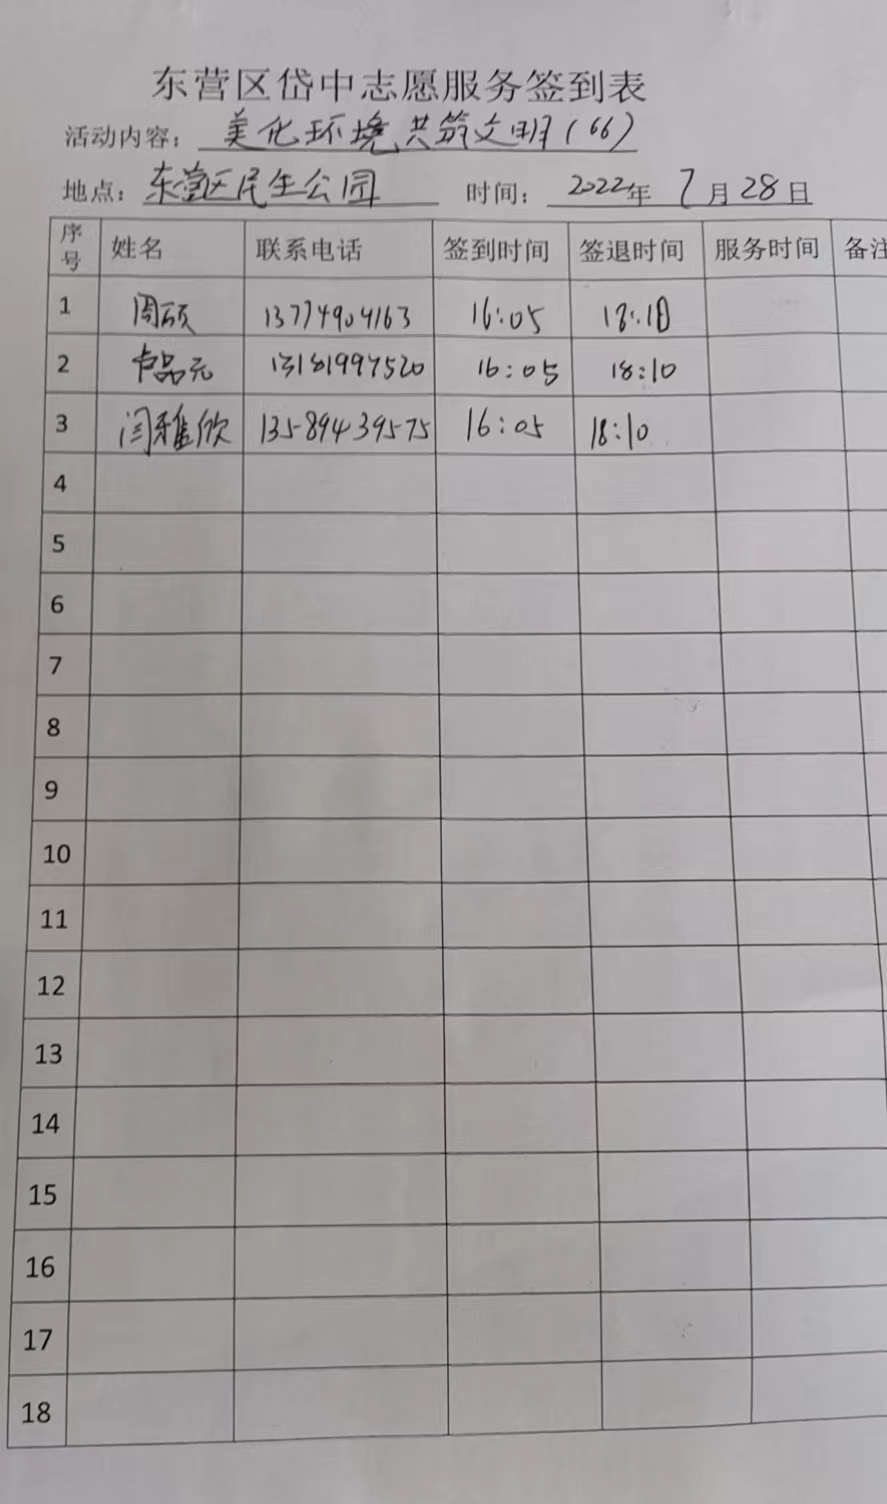 东营区岱中志愿服务签到表
活动内容：美化环境共筑文明（66）
地点：东营区民生公园 时间：2022年7月28日
序号 姓名 联系电话 签到时间 签退时间 服务时间 备注
1 周硕 13774904163 16:05 18:10
2 卢品元 13181997520 16:05 18:10
3 闫雅欣 13589439575 16:05 18:10
4
5
6
7
8
9
10
11
12
13
14
15
16
17
18